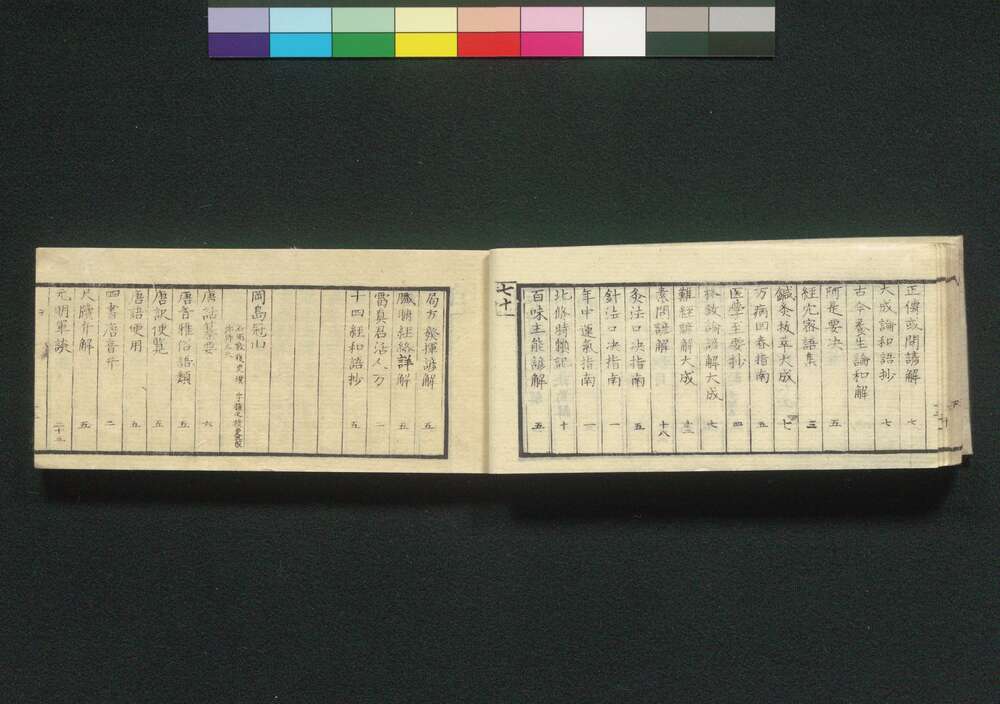 正偽或問諺解 七
大成論和語抄 七
古今養生論和解
阿是要决 五
經穴密語集 三
鍼灸抜萃大成 七
万病回春指南 五
医學至要抄 四
格致論諺解大成 七
難經諺解大成
素問諺解 十八
灸法口决指南 五
針法口决指南 一
年中運氣指南 一
北條時頼記 十
百味主能諺解 五
七十一
局方發揮諺解 五
臓腑經絡詳解 五
雷真君活人方 一
十四經和語抄 五
岡島冠山
唐話纂要 六
唐音雅俗語類 五
唐訳便覧 五
唐語便用 五
四書唐音弁 二
尺牘弁解 五
元明軍談 二十五